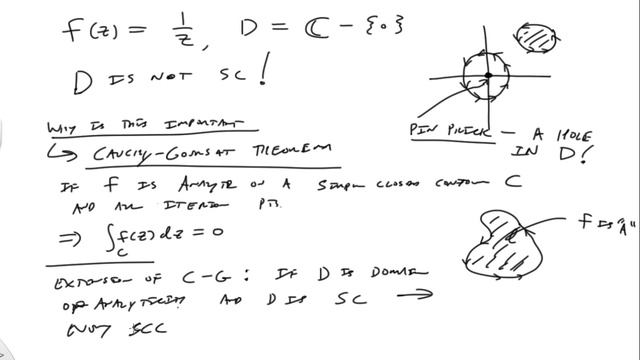 f(z) = 1/z, D = ℂ - {0}
D IS NOT SC!
PIN PRICK - A HOLE IN D!
WHY IS THIS IMPORTANT
↳ CAUCHY-GOURSAT THEOREM
IF f IS ANALYTIC ON A SIMPLE CLOSED CONTOUR C
AND ALL INTERIOR PTS.
⇒ ∫_C f(z) dz = 0
f IS "A"
EXTENSION OF C-G: IF D IS DOMAIN
OF ANALYTICITY AND D IS SC →
ANY SCC